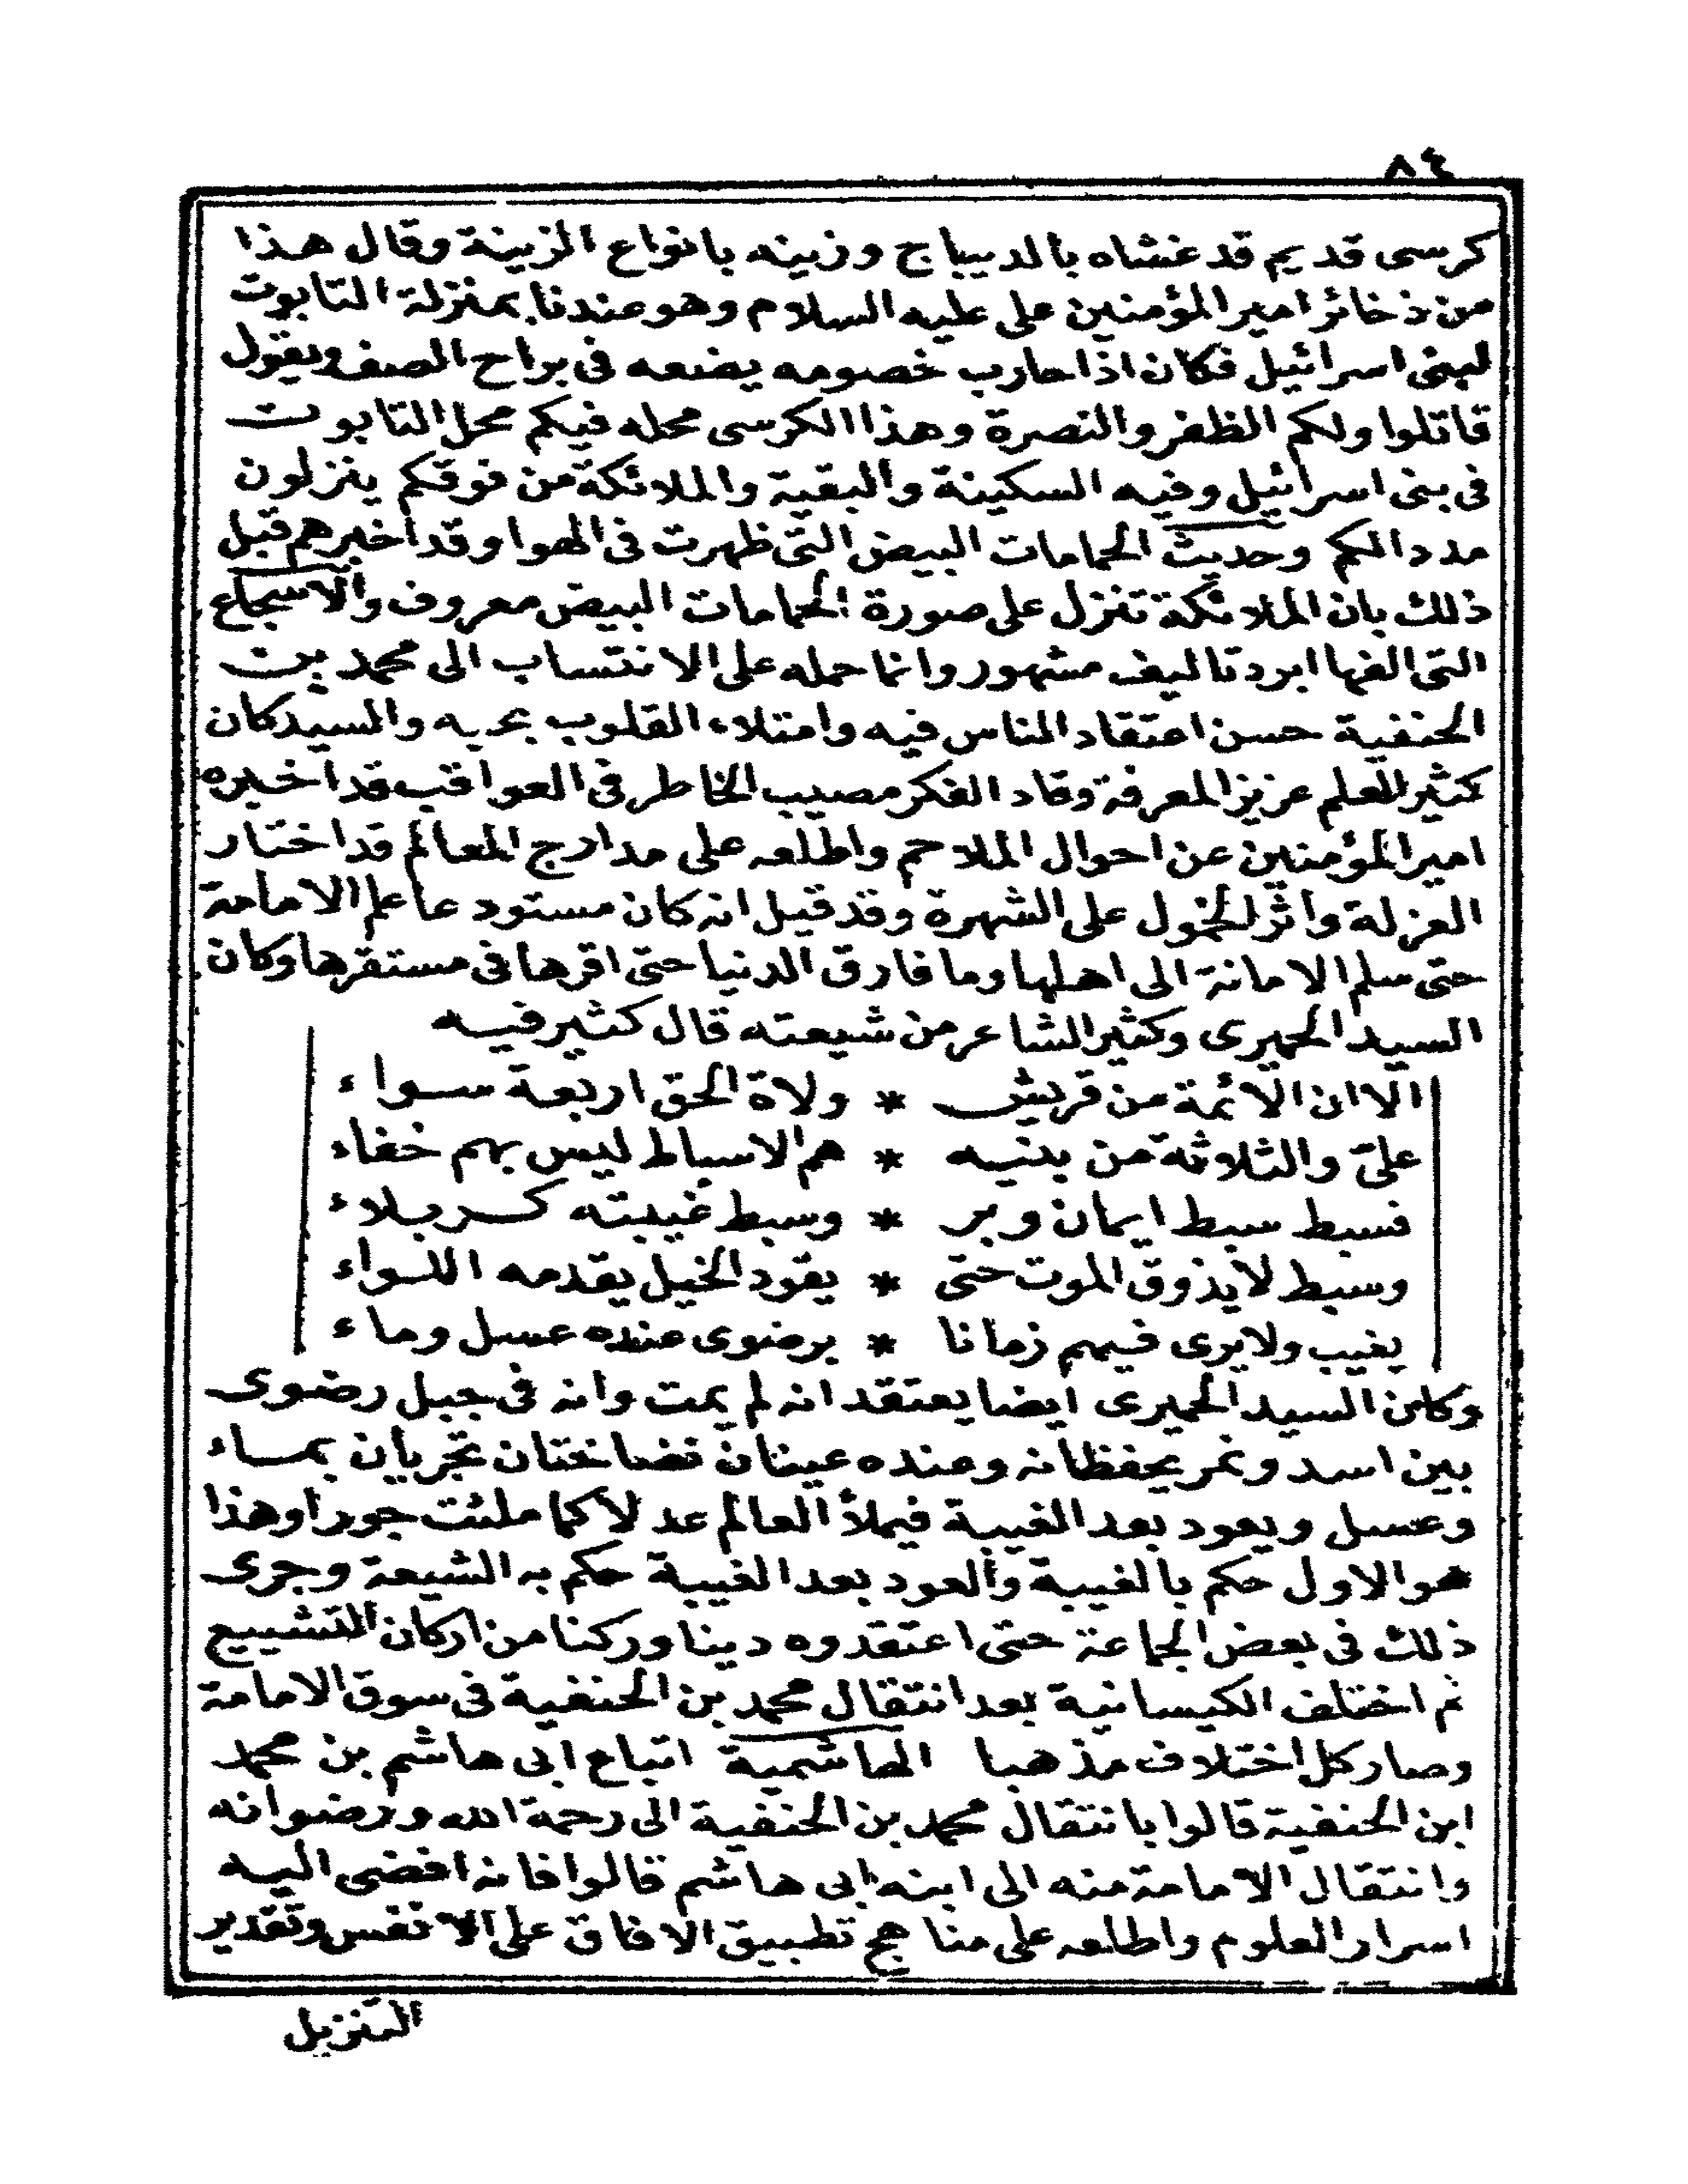 ٨٤
كرسى قديم قد غشاه بالديباج وزينه بانواع الزينة وقال هذا
من ذخائر امير المؤمنين على عليه السلام وهو عندنا بمنزلة التابوت
لبنى اسرائيل فكان اذا حارب خصومه يضعه فى براح الصف ويقول
قاتلوا ولكم الظفر والنصرة وهذا الكرسى محله فيكم محل التابوت
فى بنى اسرائيل وفيه السكينة والبقية والملائكة من فوقكم ينزلون
مددا لكم وحديث الحمامات البيض التى ظهرت فى الهوا وقد اخبرهم قبل
ذلك بان الملائكة تنزل على صورة الحمامات البيض معروف والاسجاع
التى الفها ابرد تاليف مشهور وانما حمله على الانتساب الى محمد بن
الحنفية حسن اعتقاد الناس فيه وامتلاء القلوب بحبه والسيد كان
كثير العلم عزيز المعرفة وقاد الفكر مصيب الخاطر فى العواقب قد اخبره
امير المؤمنين عن احوال الملاحم واطلعه على مدارج المعالم قد اختار
العزلة واثر الخمول على الشهرة وقد قيل انه كان مستودعا علم الامامة
حتى سلم الامانة الى اهلها وما فارق الدنيا حتى اقرها فى مستقرها وكان
السيد الحميرى وكثير الشاعر من شيعته قال كثير فيه
الا ان الائمة من قريش * ولاة الحق اربعة سواء
علىّ والثلاثة من بنيه * هم الاسباط ليس بهم خفاء
فسبط سبط ايمان وبر * وسبط غيبته كربلاء
وسبط لا يذوق الموت حتى * يقود الخيل يقدمه اللواء
يغيب ولا يرى فيهم زمانا * برضوى عنده عسل وماء
وكان السيد الحميرى ايضا يعتقد انه لم يمت وانه فى جبل رضوى
بين اسد ونمر يحفظانه وعنده عينان نضاختان تجريان بماء
وعسل ويعود بعد الغيبة فيملأ العالم عدلا كما ملئت جورا وهذا
هو الاول حكم بالغيبة والعود بعد الغيبة حكم به الشيعة وجرى
ذلك فى بعض الجماعة حتى اعتقدوه دينا وركنا من اركان التشييع
ثم اختلف الكيسانية بعد انتقال محمد بن الحنفية فى سوق الامامة
وصار كل اختلاف مذهبا الهاشمية اتباع ابى هاشم بن محمد
ابن الحنفية قالوا بانتقال محمد بن الحنفية الى رحمة الله ورضوانه
وانتقال الامامة منه الى ابنه ابى هاشم قالوا فانه افضى اليه
اسرار العلوم واطلعه على مناهج تطبيق الافاق على الانفس وتقدير
التنزيل